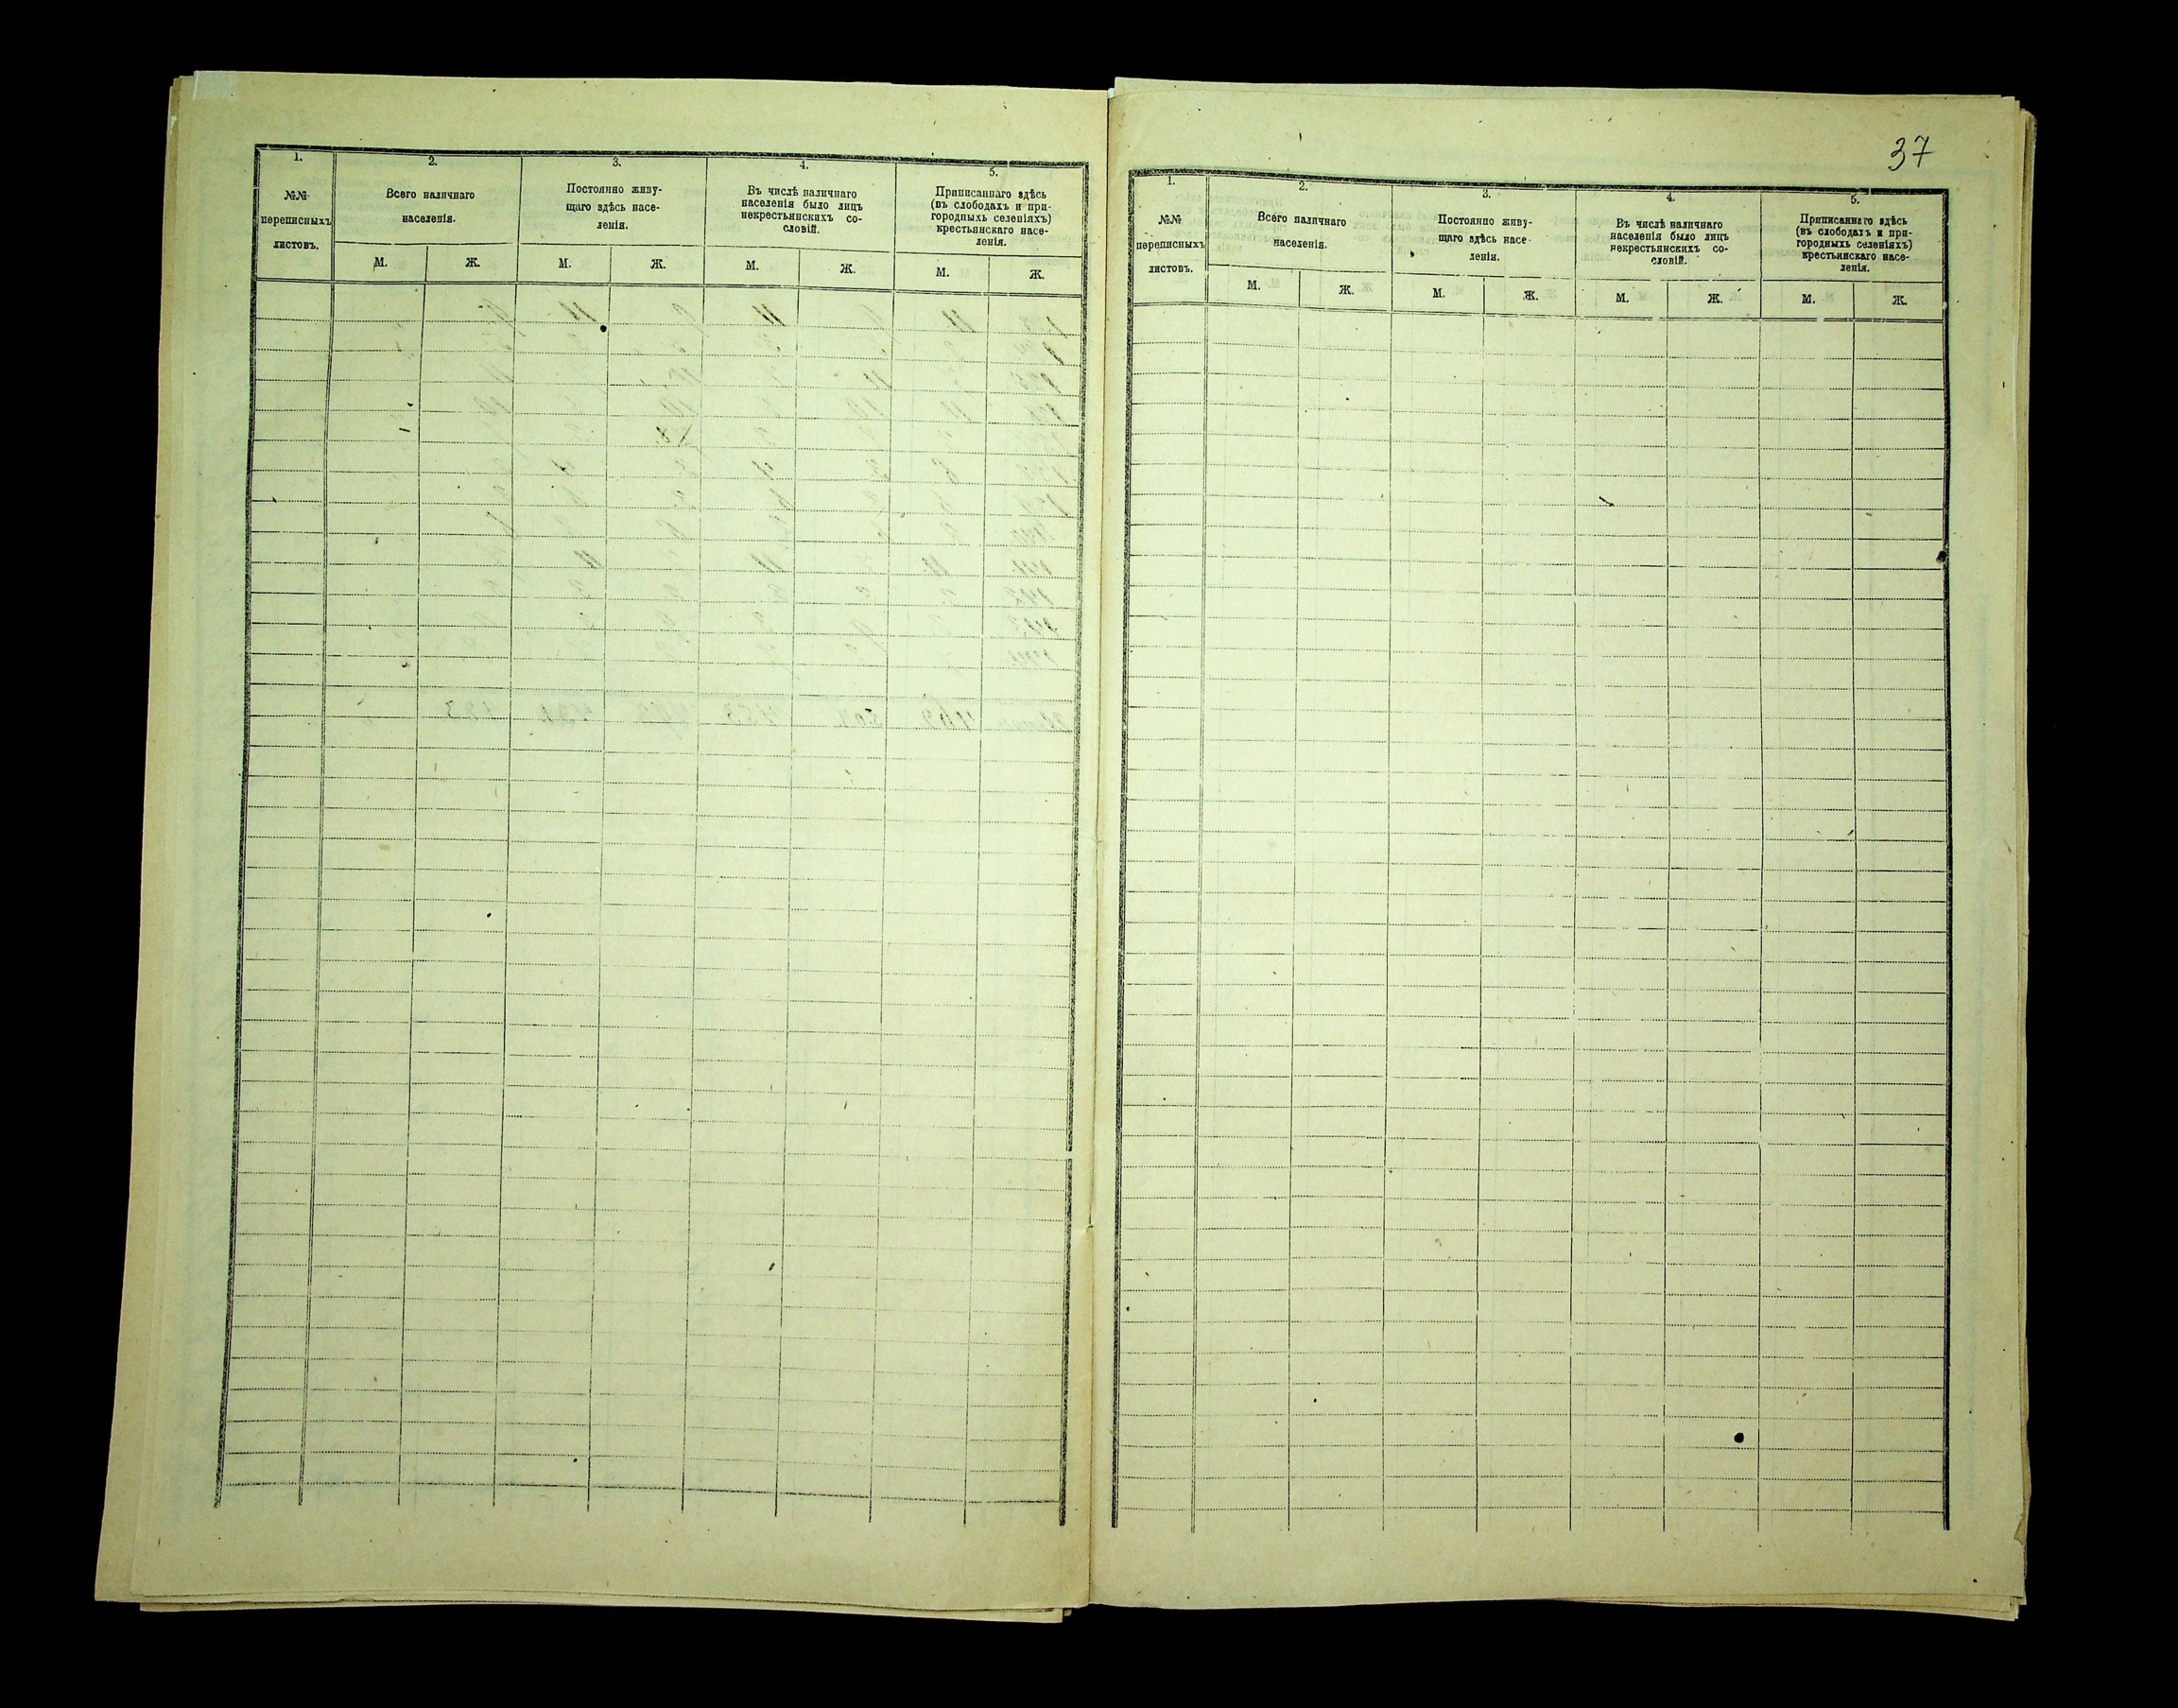 1.
№№
переписныхъ
листовъ.
2.
Всего наличнаго
населенія.
М. Ж.
3.
Постоянно живу-
щаго здѣсь насе-
ленія.
М. Ж.
4.
Въ числѣ наличнаго
населенія было лицъ
некрестьянскихъ со-
словій.
М. Ж.
5.
Приписаннаго здѣсь
(въ слободахъ и при-
городныхъ селеніяхъ)
крестьянскаго насе-
ленія.
М. Ж.
37
1.
№№
переписныхъ
листовъ.
2.
Всего наличнаго
населенія.
М. Ж.
3.
Постоянно живу-
щаго здѣсь насе-
ленія.
М. Ж.
4.
Въ числѣ наличнаго
населенія было лицъ
некрестьянскихъ со-
словій.
М. Ж.
5.
Приписаннаго здѣсь
(въ слободахъ и при-
городныхъ селеніяхъ)
крестьянскаго насе-
ленія.
М. Ж.